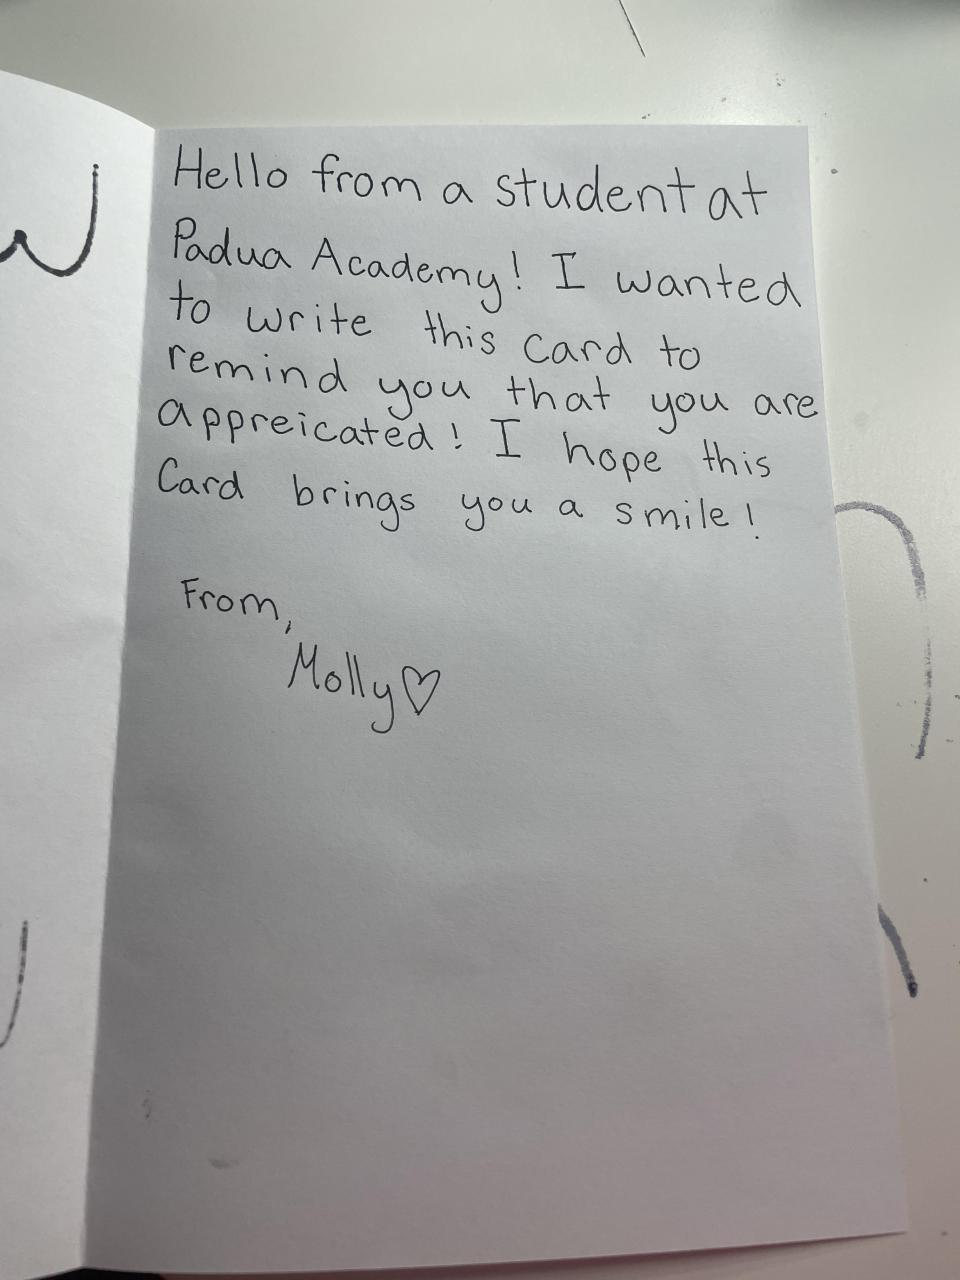 Hello from a student at
Padua Academy! I wanted
to write this card to
remind you that you are
appreicated! I hope this
Card brings you a smile!
From,
Molly♡